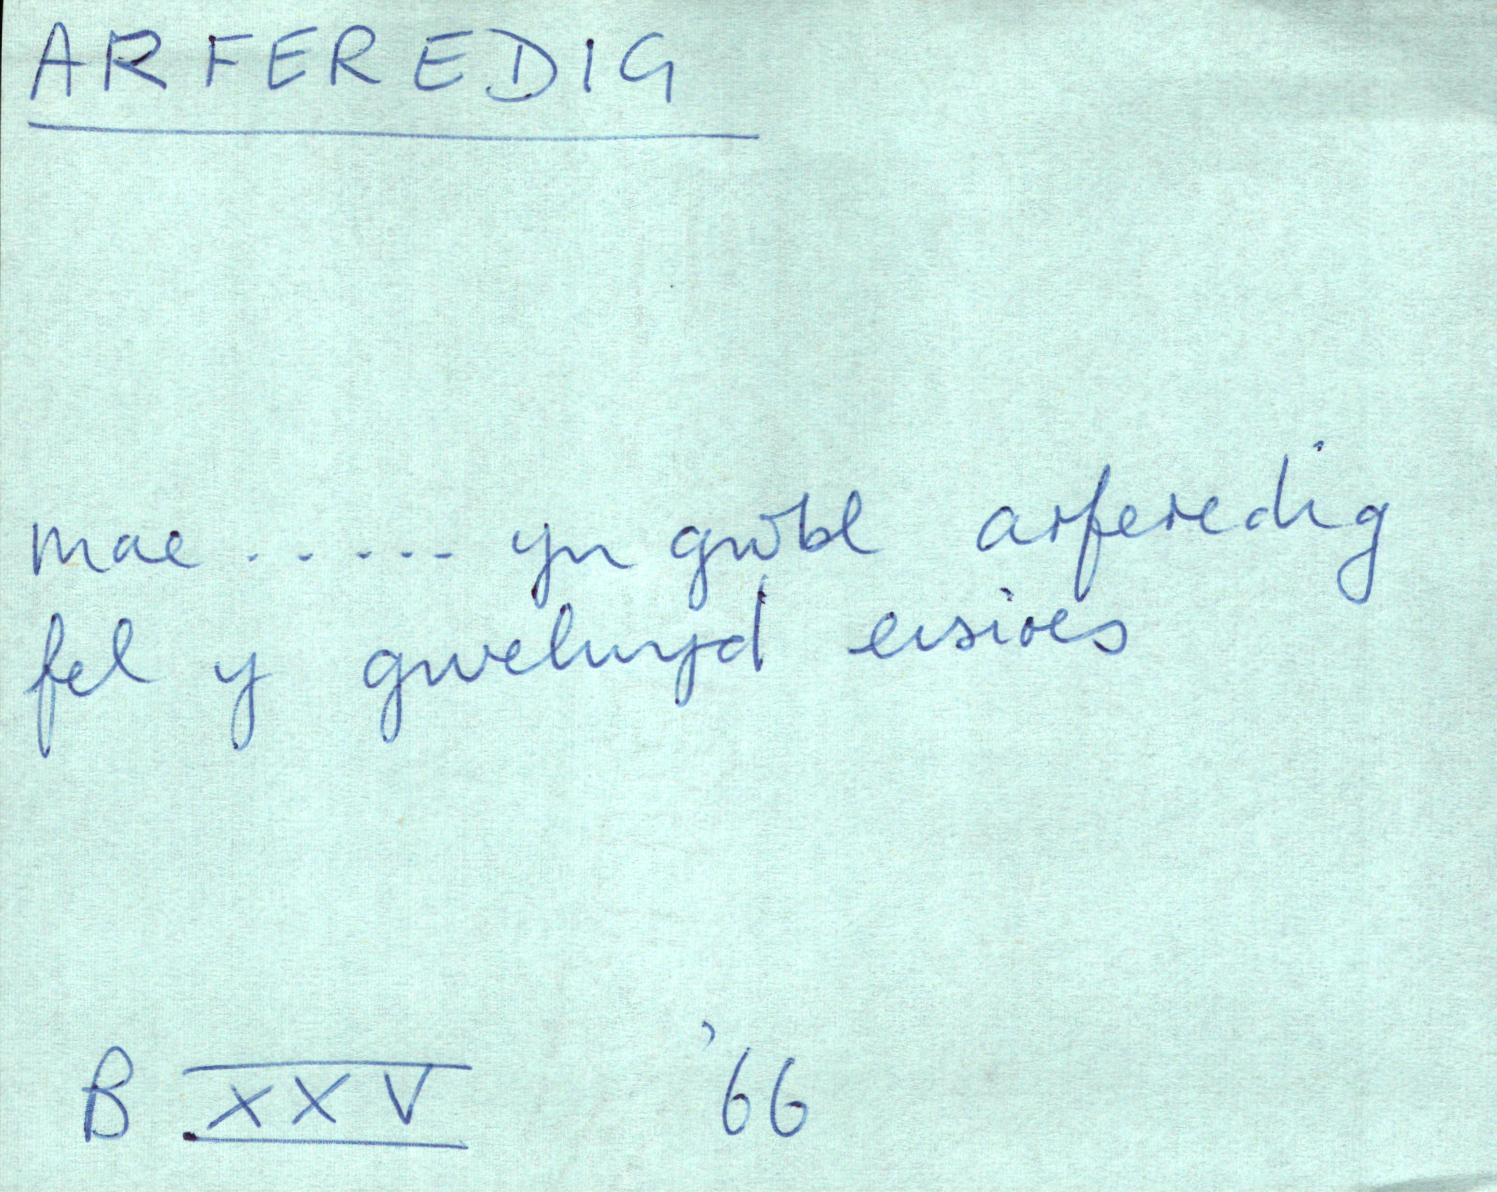 ARFEREDIG
mae ...... yn gwbl arferedig
fel y gwelwyd eisioes
B XXV '66